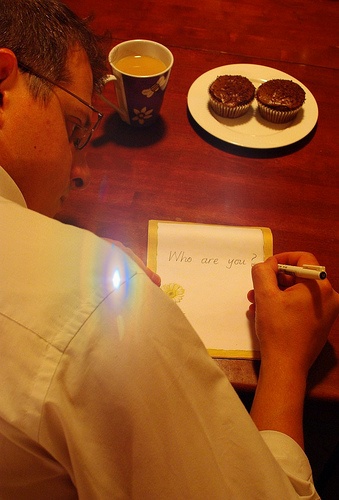 Who are you?